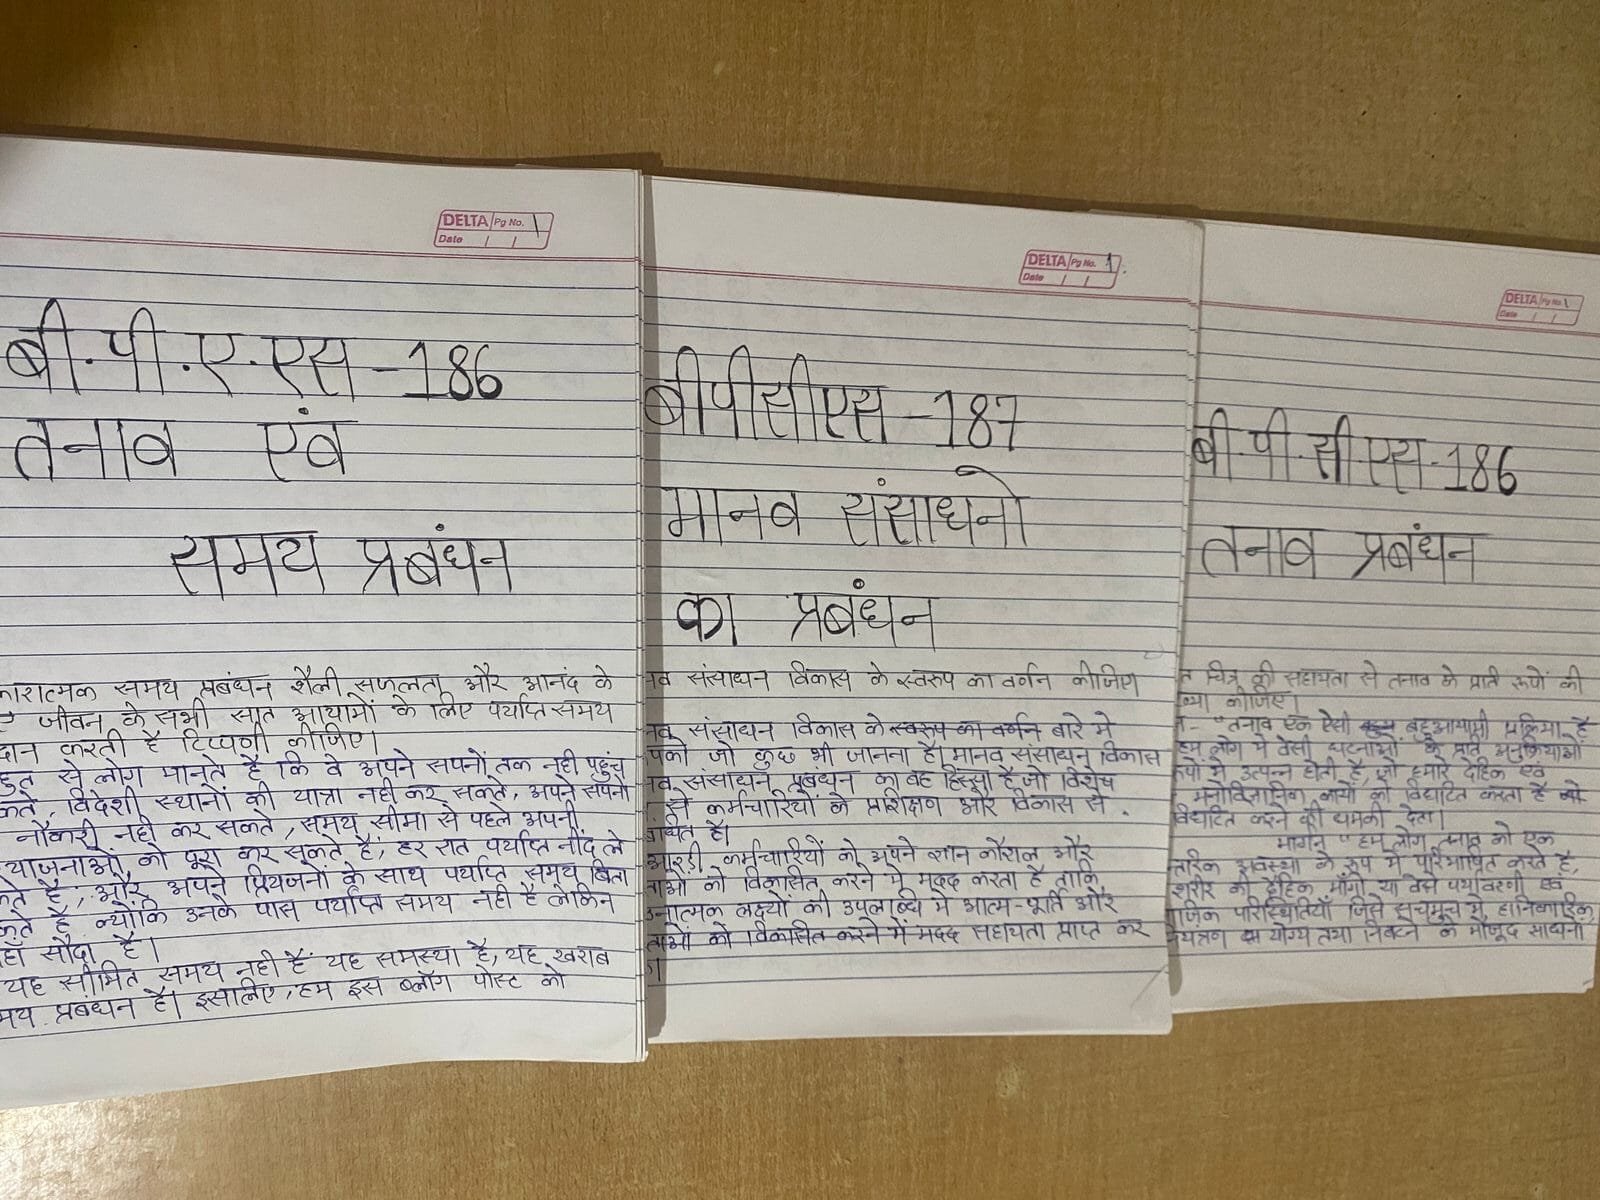 DELTA Pg No. 1
Date / /
बी.पी.ए.एस-186
तनाव एंव
समय प्रबंधन
समय प्रबंधन शैली सफलता और आनंद के
जीवन के सभी सात आयामों के लिए पर्याप्त समय
करती है टिप्पणी कीजिए।
से लोग मानते है कि वे अपने सपनों तक नही पहुंच
विदेशी स्थानों की यात्रा नही कर सकते, अपने सपनो
नौकरी नही कर सकते, समय सीमा से पहले अपनी
को पूरा कर सकते है, हर रात पर्याप्त नींद ले
है, और अपने प्रियजनों के साथ पर्याप्त समय बिता
है क्योंकि उनके पास पर्याप्त समय नही है लेकिन
सौदा है।
यह सीमित समय नही है यह समस्या है, यह खराब
प्रबंधन है। इसलिए, हम इस ब्लॉग पोस्ट को
DELTA Pg No. 1.
Date / /
बीपीसीएस-187
मानव संसाधनो
का प्रबंधन
संसाधन विकास के स्वरुप का वर्णन कीजिए
संसाधन विकास के स्वरुप का वर्णन बारे मे
जो कुछ भी जानना है। मानव संसाधन विकास
संसाधन प्रबंधन का वह हिस्सा है जो विशेष
से कर्मचारियों के प्रशिक्षण और विकास से
है।
कर्मचारियों को अपने ज्ञान कौशल और
को विकसित करने मे मदद करता है ताकि
लक्ष्यों की उपलब्धि मे आत्म-पूर्ति और
को विकसित करने में मदद सहायता प्राप्त कर
DELTA Pg No. 1
Date / /
बी.पी.सी.एस-186
तनाव प्रबंधन
चित्र की सहायता से तनाव के प्रति रूपों की
कीजिए।
"तनाव एक ऐसी बहुआयामी प्रक्रिया है
लोग मे वैसी घटनाओं के प्रति अनुक्रियाओं
मे उत्पन्न होती है, जो हमारे दैहिक एंव
मनोवैज्ञानिक कार्यो को विघटित करता है
विघटित करने की धमकी देता।
"हम लोग तनाव को एक
अवस्था के रूप मे परिभाषित करते है,
की दैहिक माँगो या वैसे पर्यावरणी एंव
परिस्थितियाँ जिसे सचमुच मे हानिकारिक,
योग्य तथा के मौजूद साधनो